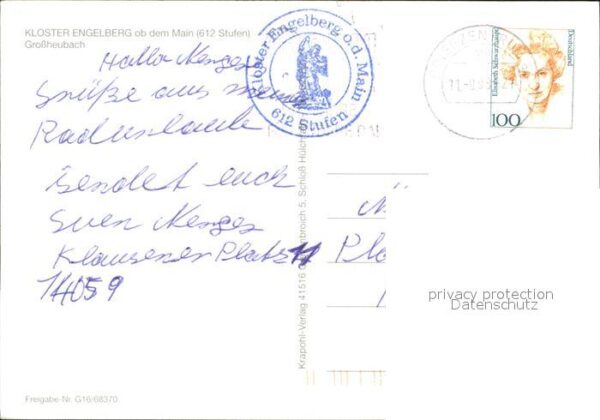 KLOSTER ENGELBERG ob dem Main (612 Stufen)
Großheubach
Hallo Menges
Grüße aus meinem
Radurlaub
sendet euch
Sven Menges
Klausener Platz 11
14059
Kloster Engelberg o.d. Main
612 Stufen
Deutschland
100
Krapohl-Verlag 41516 Schloß Hülch
Pla
privacy protection
Datenschutz
Freigabe-Nr. G16-68370